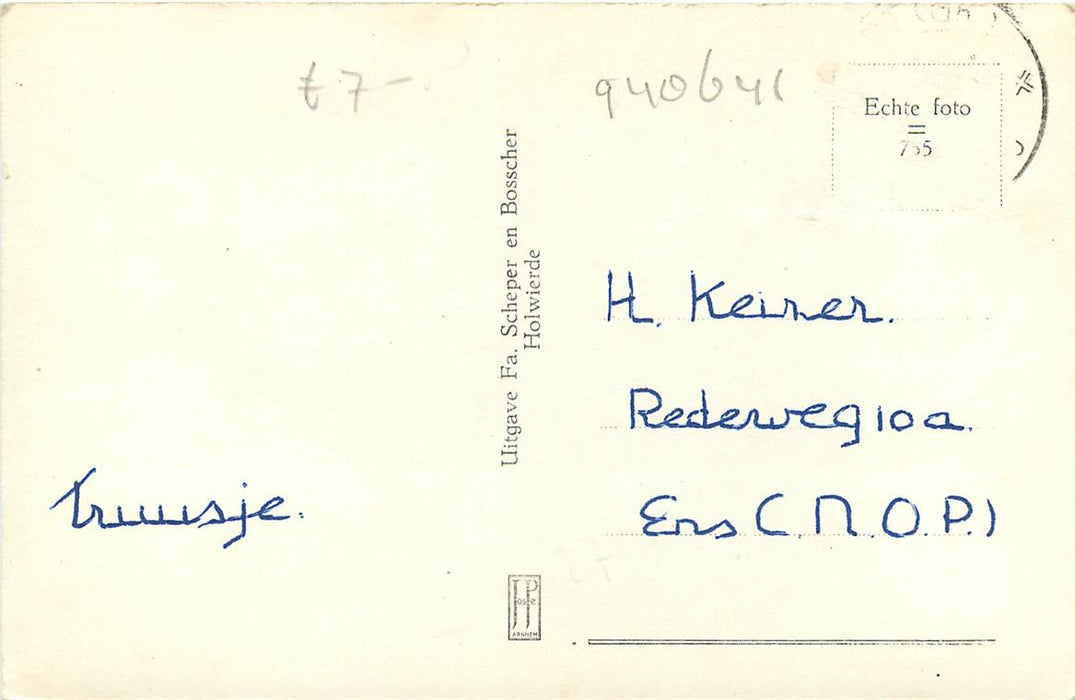 € 7-
940641
Echte foto
=
755
Uitgave Fa. Scheper en Bosscher
Holwierde
H. Keizer.
Rederweg 10a.
Ens (N.O.P.)
Truusje.
JP
ARNHEM